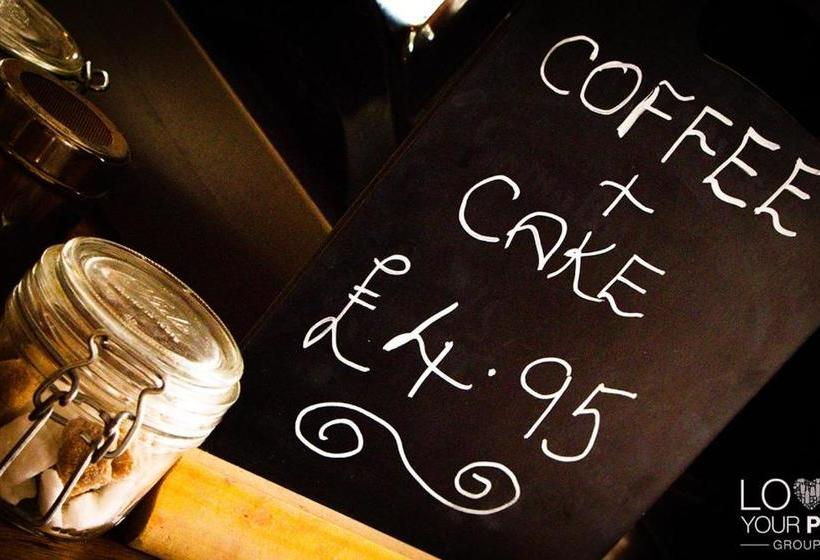 COFFEE
+
CAKE
£4.95
LO
YOUR P
GROUP